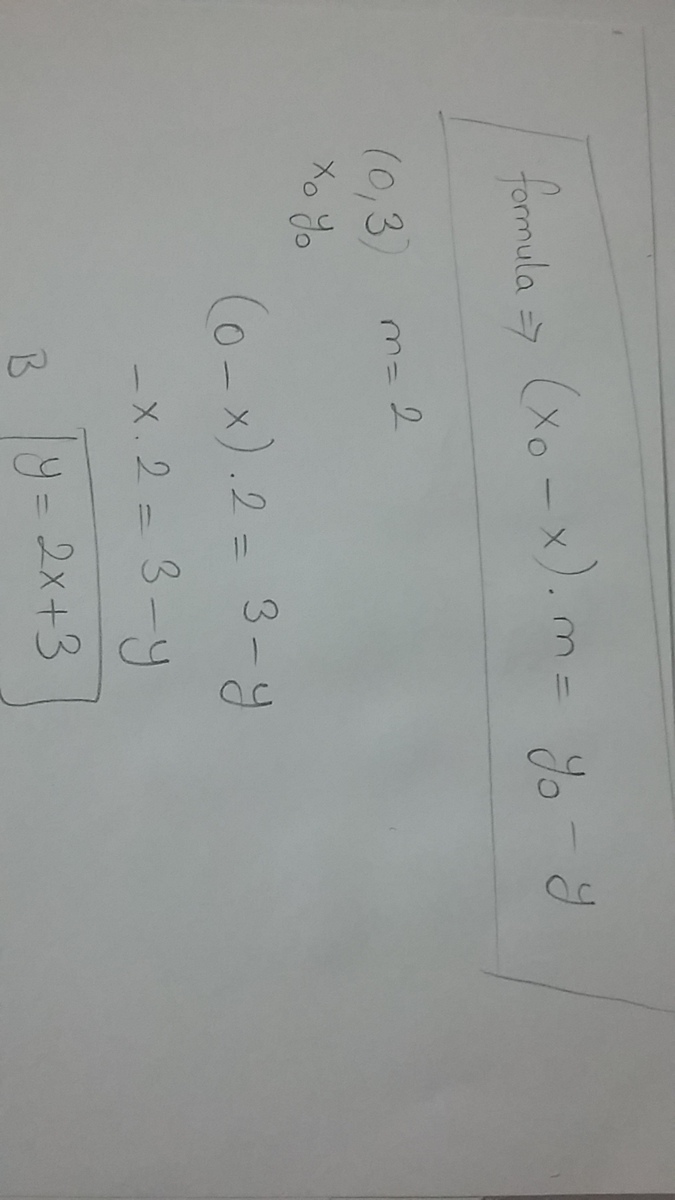 formula ⇒ (x₀ − x) . m = y₀ − y
(0, 3) m = 2
x₀ y₀
(0 − x) . 2 = 3 − y
−x . 2 = 3 − y
B y = 2x + 3